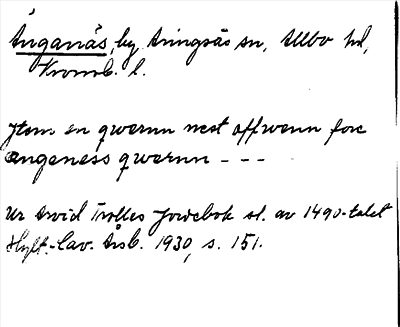 Änganäs, by, Aringsås sn, Allbo hd,
Kronob. l.
Jtem en qwernn nest offwenn fore
engeness qwernn - - -
Ur Arvid Trolles Jordebok sl. av 1490-talet
Hylt.-Cav. Årsb. 1930, s. 151.